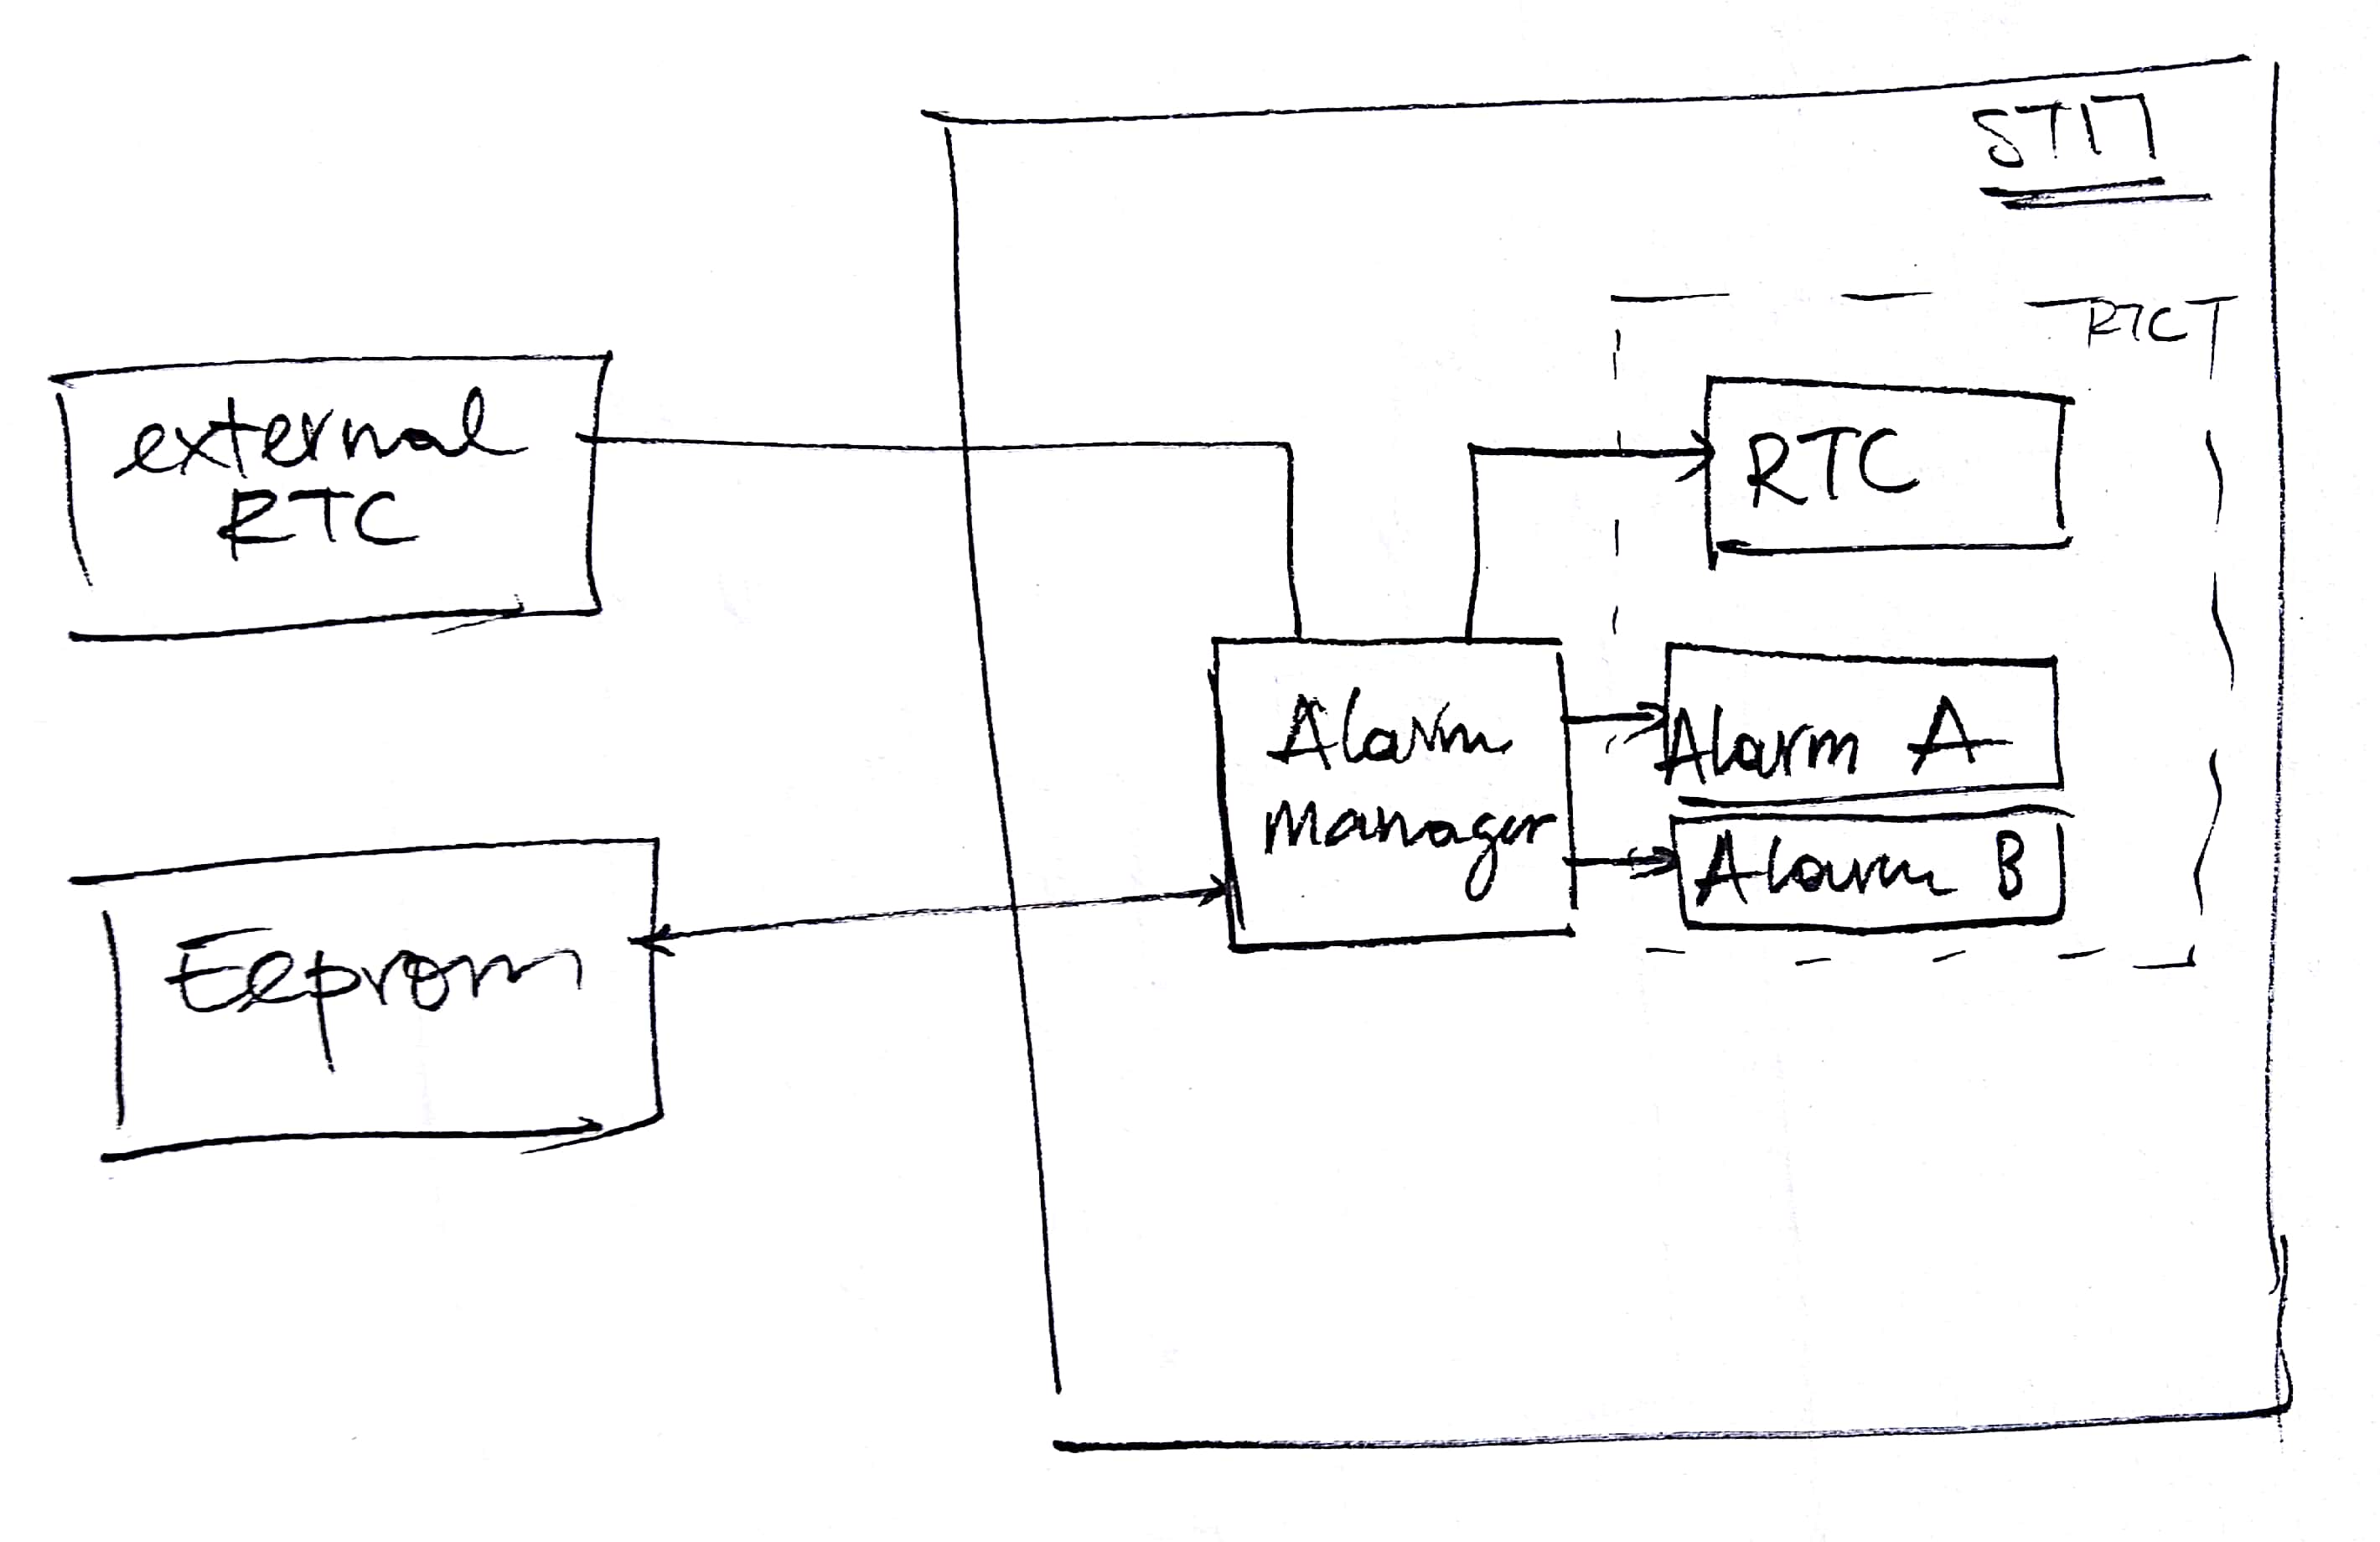 RTC
external
RTC
RTC
Alarm
Manager
Alarm A
Alarm B
Eeprom